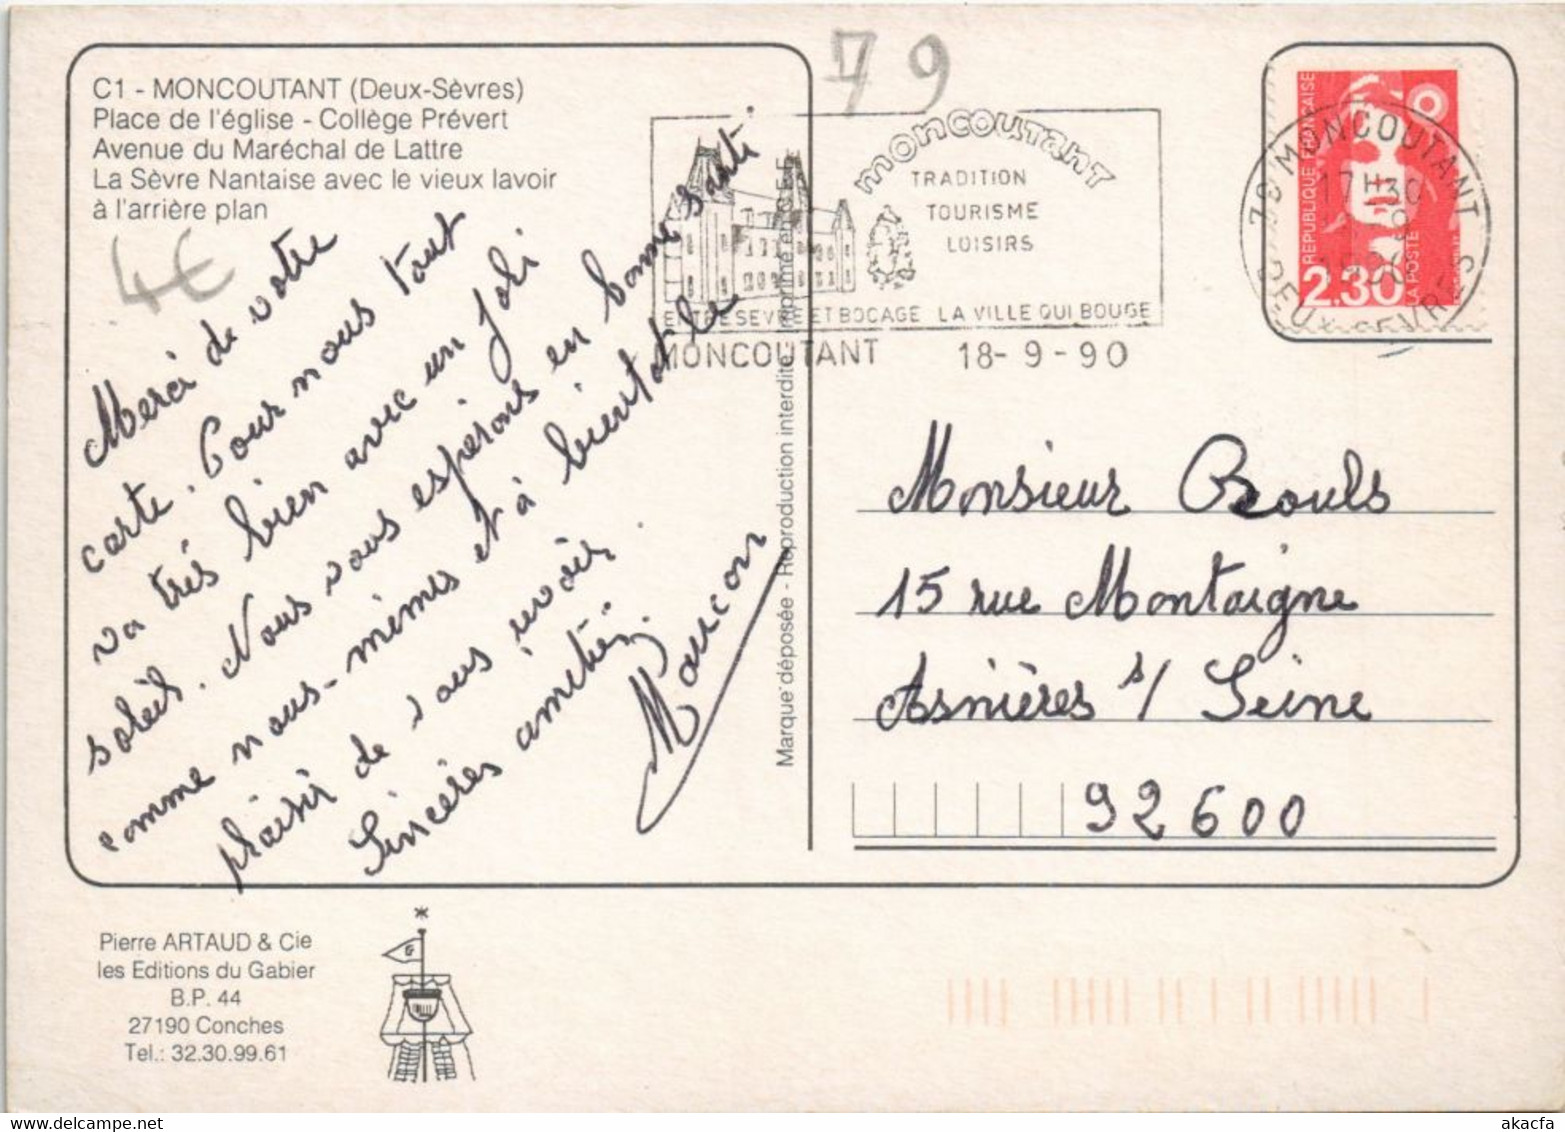 79
C1 - MONCOUTANT (Deux-Sèvres)
Place de l'église - Collège Prévert
Avenue du Maréchal de Lattre
La Sèvre Nantaise avec le vieux lavoir
à l'arrière plan
4€
Merci de votre
carte. Pour nous tout
va très bien avec un joli
soleil. Nous vous espérons en bonne santé
comme nous-mêmes et à bientôt le
plaisir de vous revoir.
Sincères amitiés.
Marque déposée - Reproduction interdite - Imprimé en C.E.E.
moncoutant
TRADITION
TOURISME
LOISIRS
ENTRE SEVRE ET BOCAGE LA VILLE QUI BOUGE
MONCOUTANT 18-9-90
79 MONCOUTANT
17H30
DEUX-SEVRES
REPUBLIQUE FRANÇAISE
2.30
LA POSTE
Monsieur
15 rue Montaigne
Asnières s/ Seine
92600
Pierre ARTAUD & Cie
les Editions du Gabier
B.P. 44
27190 Conches
Tel.: 32.30.99.61
G
akacfa